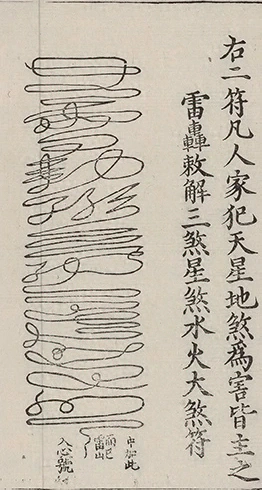 右二符凡人家犯天星地煞為害皆主之
雷轟敕解三煞星煞水火大煞符
中加此
雷山
入心號